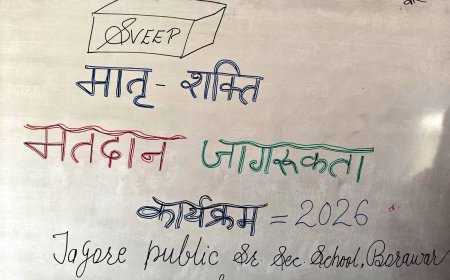 SVEEP
मातृ - शक्ति
मतदान जागरूकता
कार्यक्रम = 2026
Tagore public Sr. Sec. School, Borawar